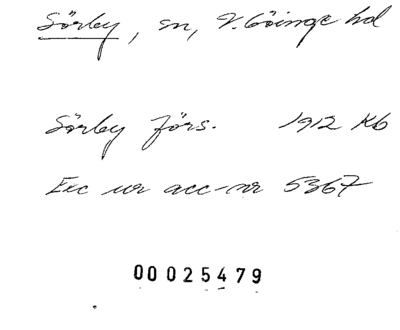 Sörby, sn, V. Göinge hd
Sörby förs. 1912 Kb
Exc ur acc-nr 5367
00025479